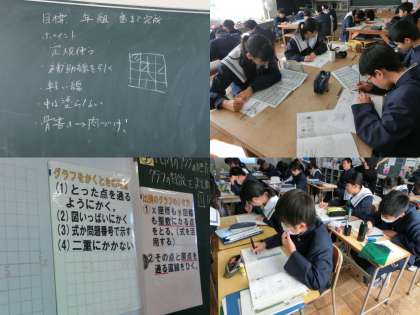 目標 年組 名まで完成
ポイント
・定規使う
・補助線を引く
・軽い線
・中は塗らない
・骨書き→肉づけ!
グラフをかくとき
(1) とった点を通る
ようにかく。
(2) 図いっぱいにかく。
(3) 式か問題番号で示す
(4) 二重にかかない。
比例のグラフのかき方
1 x座標もy座標
も整数になる点
をとる。(式を活
用する)
2 その点と原点を
通る直線をひく。